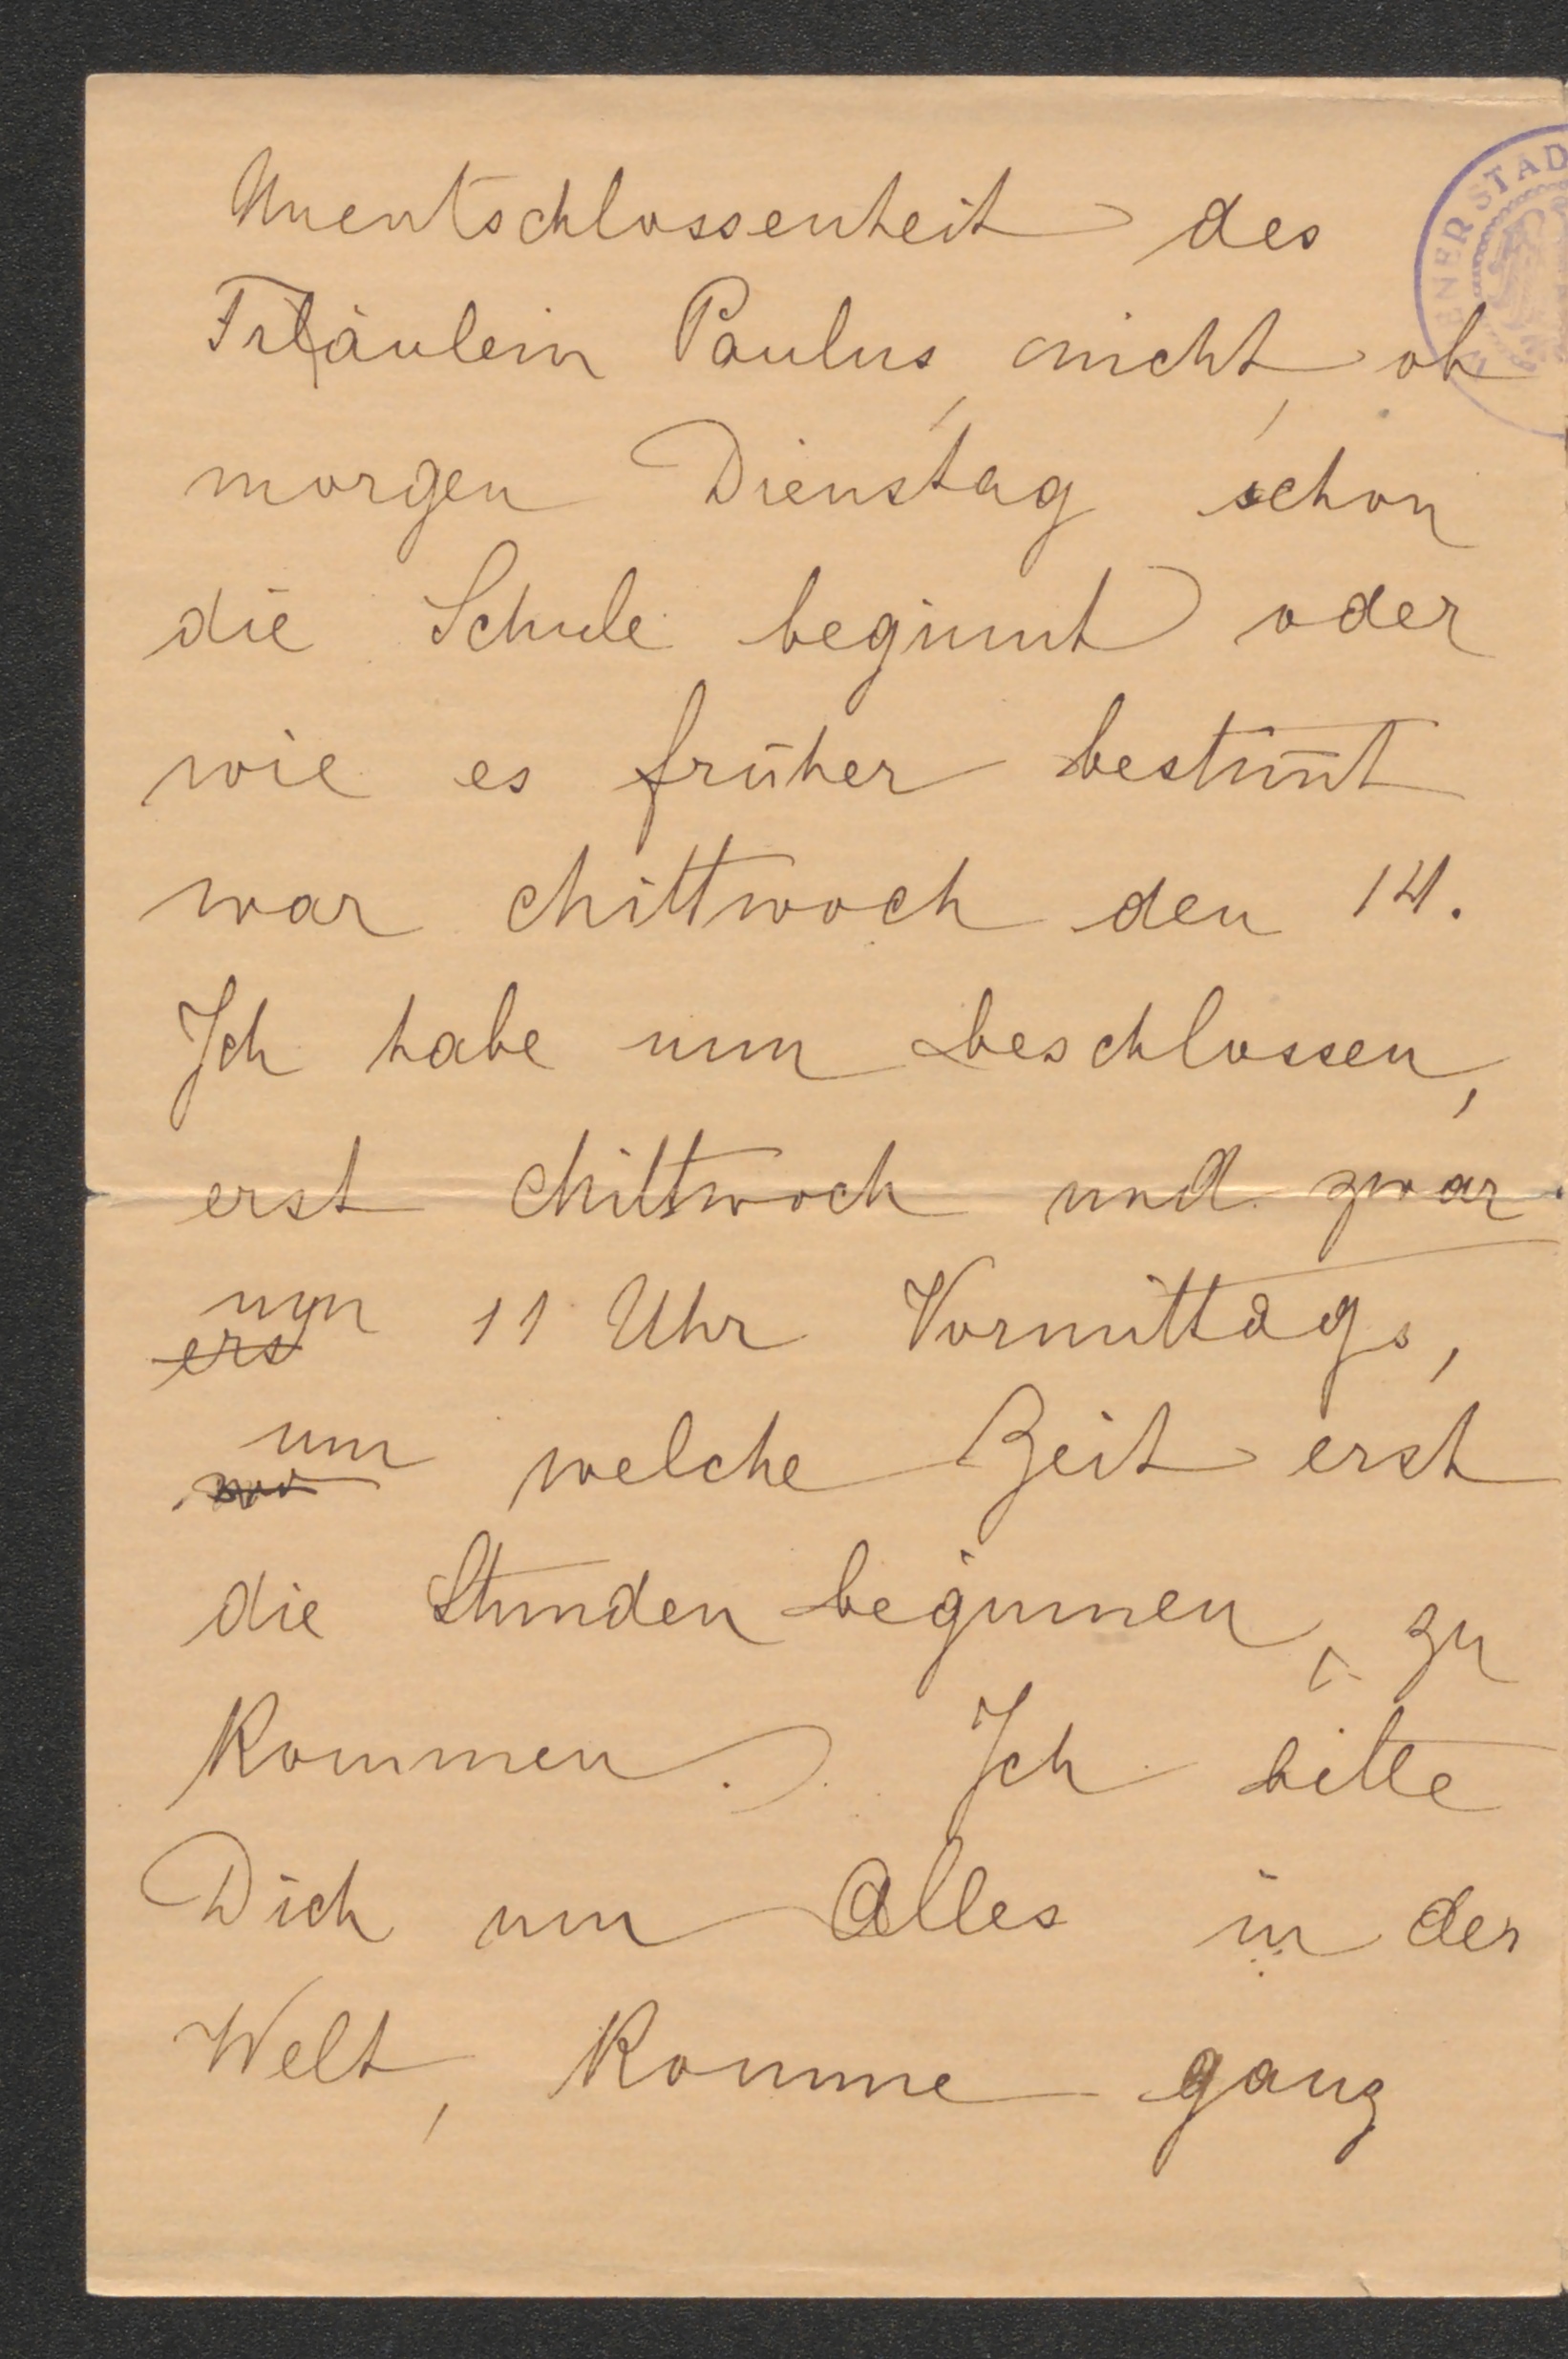 Unentschlossenheit des
Fräulein Paulus, nicht, ob
morgen Dienstag schon
die Schule beginnt oder
wie es früher bestim̄t
war Mittwoch den 14.
Ich habe nun beschlossen,
erst Mittwoch und zwar
um 11 Uhr Vormittags,
ers
um welche Zeit erst
die Stunden beginnen, zu
kommen. Ich bitte
Dich um Alles in der
Welt, komme ganz
ENER STAD